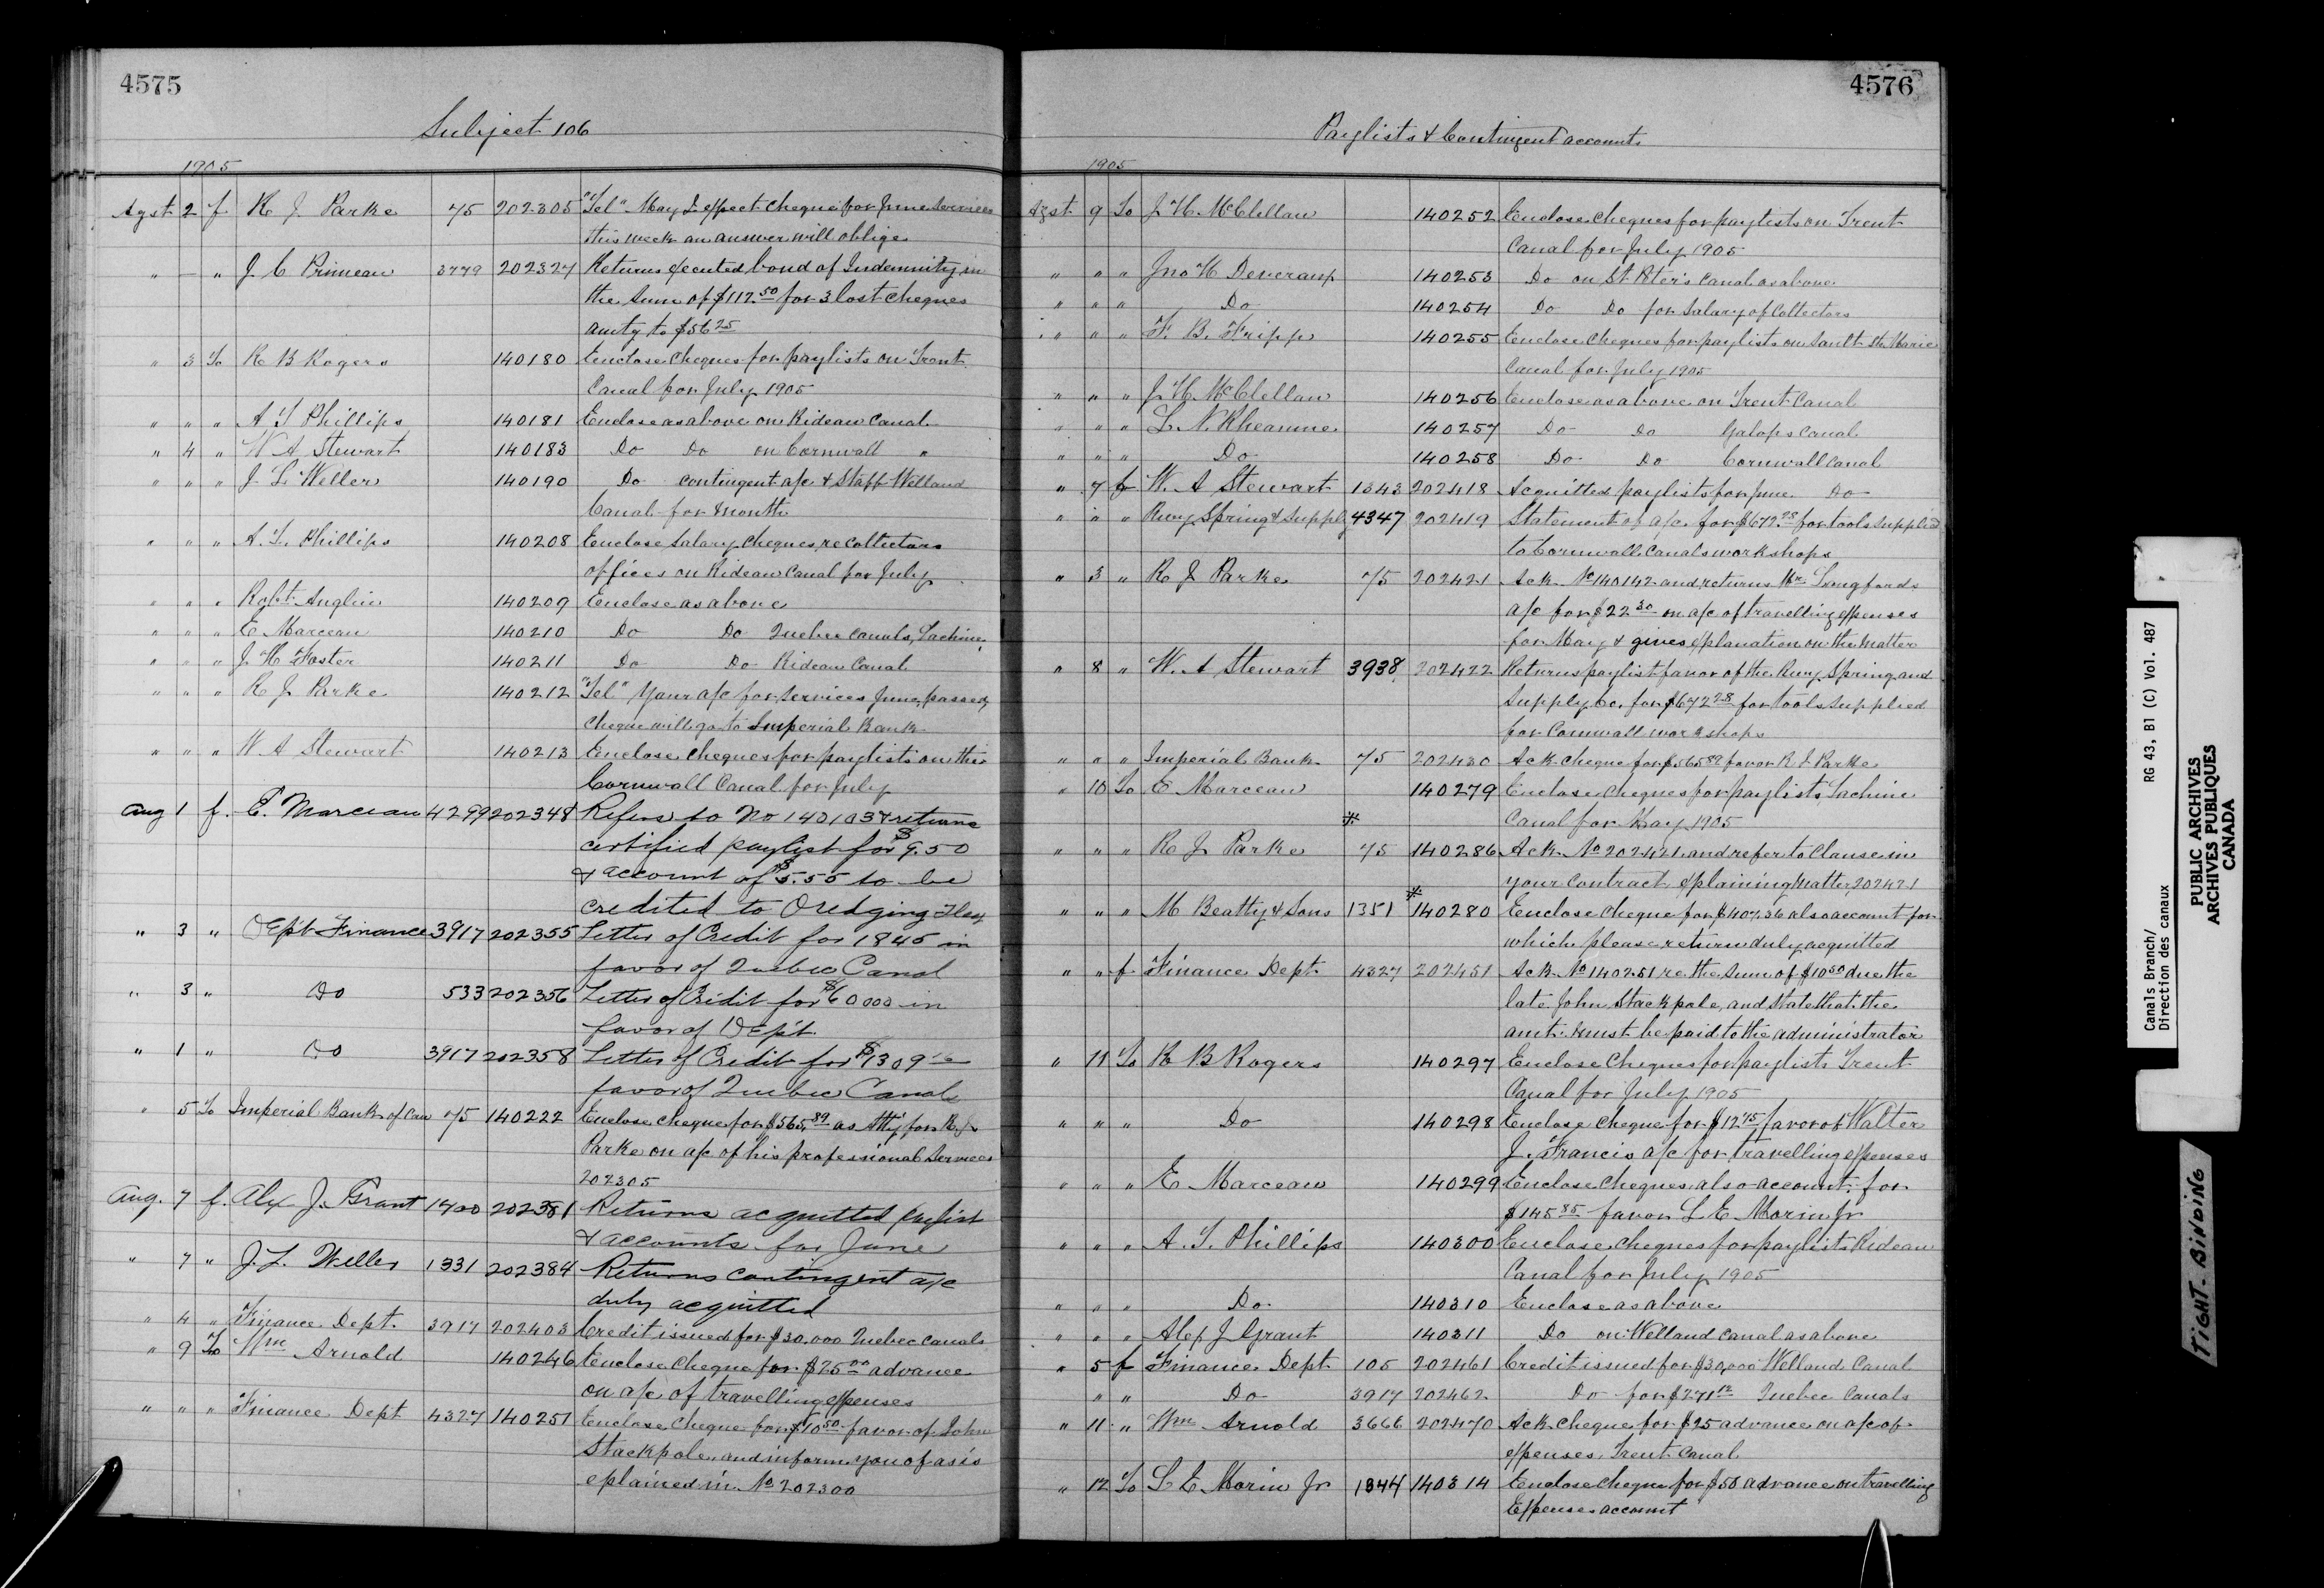 4575
Subject 106
1905
Agst 2 f R J Parke 75 202305 "Tel" May I expect cheque for June services
this week an answer will oblige
" — " J C Primeau 3779 202327 Returns executed bond of Indemnity in
the sum of $112.50 for 3 lost cheques
amtg to $56.25
" 3 To R B Rogers 140180 Enclose cheques for paylists on Trent
Canal for July 1905
" " " A T Phillips 140181 Enclose as above on Rideau Canal
" 4 " W A Stewart 140183 Do Do on Cornwall "
" " " J L Weller 140190 Do contingent a/c & Staff Welland
Canal for month
" " " A. T. Phillips 140208 Enclose salary cheques, re collectors
offices on Rideau Canal for July
" " " Robt Anglin 140209 Enclose as above
" " " E Marceau 140210 Do Do Quebec Canals, Lachine
" " " J. H Foster 140211 Do Do Rideau Canal
" " " R J Parke 140212 "Tel" Your a/c for services June, passed,
cheque will go to Imperial Bank
" " " W A Stewart 140213 Enclose cheques for paylists on the
Cornwall Canal for July
Aug 1 f. E. Marceau 4299 202348 Refers to No 140103 & returns
certified paylist for $9.50
& account of $5.55 to be
credited to Dredging
" 3 " Dep't Finance 3917 202355 Letter of Credit for 1845 in
favor of Quebec Canal
" 3 " Do 533 202356 Letter of Credit for $60000 in
favor of Dep't.
" 1 " Do 3917 202358 Letter of Credit for $1309
favor of Quebec Canals
" 5 To Imperial Bank of Can 75 140222 Enclose cheque for $565.89 as Att'y for R. J.
Parke on a/c of his professional Services
202305
Aug. 7 f. Alex J. Grant 1400 202381 Returns acquitted paylist
& accounts for June
" 7 " J. L. Weller 1331 202384 Returns contingent a/c
duly acquitted
" 4 " Finance Dept. 3917 202403 Credit issued for $30.000 Quebec Canals
" 9 To Wm Arnold 140246 Enclose cheque for $25.00 advance
on a/c of travelling expenses
" " " Finance Dept 4327 140251 Enclose cheque for $10.50 favor of John
Stackpole, and inform you of as is
explained in No 202300
4576
Paylists & Contingent accounts
1905
Agst 9 To J H McClellan 140252 Enclose cheques for paylists on Trent
Canal for July 1905
" " " Jno H Devereaux 140253 Do on St. Peter's Canal as above
" " " Do 140254 Do Do for Salary of Collectors
" " " F. B. Fripp 140255 Enclose cheques for paylists on Sault Ste Marie
Canal for July 1905
" " " J H McClellan 140256 Enclose as above on Trent Canal
" " " L. N. Rheaume 140257 Do Do Galops Canal
" " " Do 140258 Do Do Cornwall Canal
" 7 f W. A Stewart 1343 202418 Acquitted paylists for June Do
" " " Rwy Spring & Supply 4347 202419 Statement of a/c for $672.28 for tools supplied
to Cornwall Canals workshops
" 3 " R J Parke 75 202421 Ack No 140142 and returns Mr. Langfords
a/c for $22.30 on a/c of travelling expenses
for May & gives explanation on the matter
" 8 " W. A Stewart 3938 202422 Returns paylist favor of the Rwy. Spring and
Supply Co. for $672.28 for tools supplied
for Cornwall workshops
" " " Imperial Bank 75 202430 Ack cheque for $565.89 favor R J Parke
" 10 To E Marceau 140279 Enclose cheques for paylists Lachine
Canal for May 1905
" " " R J Parke 75 140286 Ack. No 202421 and refer to Clause in
your contract explaining matter 202421
" " " M Beatty & Sons 1351 140280 Enclose cheque for $407.36 also account for
which please return duly acquitted
" " f Finance Dept. 4327 202451 Ack No 140251 re the sum of $10.50 due the
late John Stackpole, and state that the
amt. must be paid to the administrator
" 11 To R B Rogers 140297 Enclose cheques for paylists Trent
Canal for July 1905
" " " Do 140298 Enclose cheque for $12.75 favor of Walter
J. Francis a/c for travelling expenses
" " " E Marceau 140299 Enclose cheques also account for
$145.85 favor L E Morin Jr
" " " A. T. Phillips 140300 Enclose cheques for paylists Rideau
Canal for July 1905
" " " Do 140310 Enclose as above
" " " Alex J Grant 140311 Do on Welland Canal as above
" 5 f Finance Dept. 105 202461 Credit issued for $30,000 Welland Canal
" " Do 3917 202462 Do for $271.12 Quebec Canals
" 11 " Wm Arnold 3666 202470 Ack cheque for $25 advance on a/c of
expenses, Trent Canal
" 12 To L E Morin Jr 1344 140314 Enclose cheque for $50 advance on travelling
Expenses account
Canals Branch/ RG 43, B1 (C) Vol. 487
Direction des canaux
PUBLIC ARCHIVES
ARCHIVES PUBLIQUES
CANADA
TIGHT BINDING